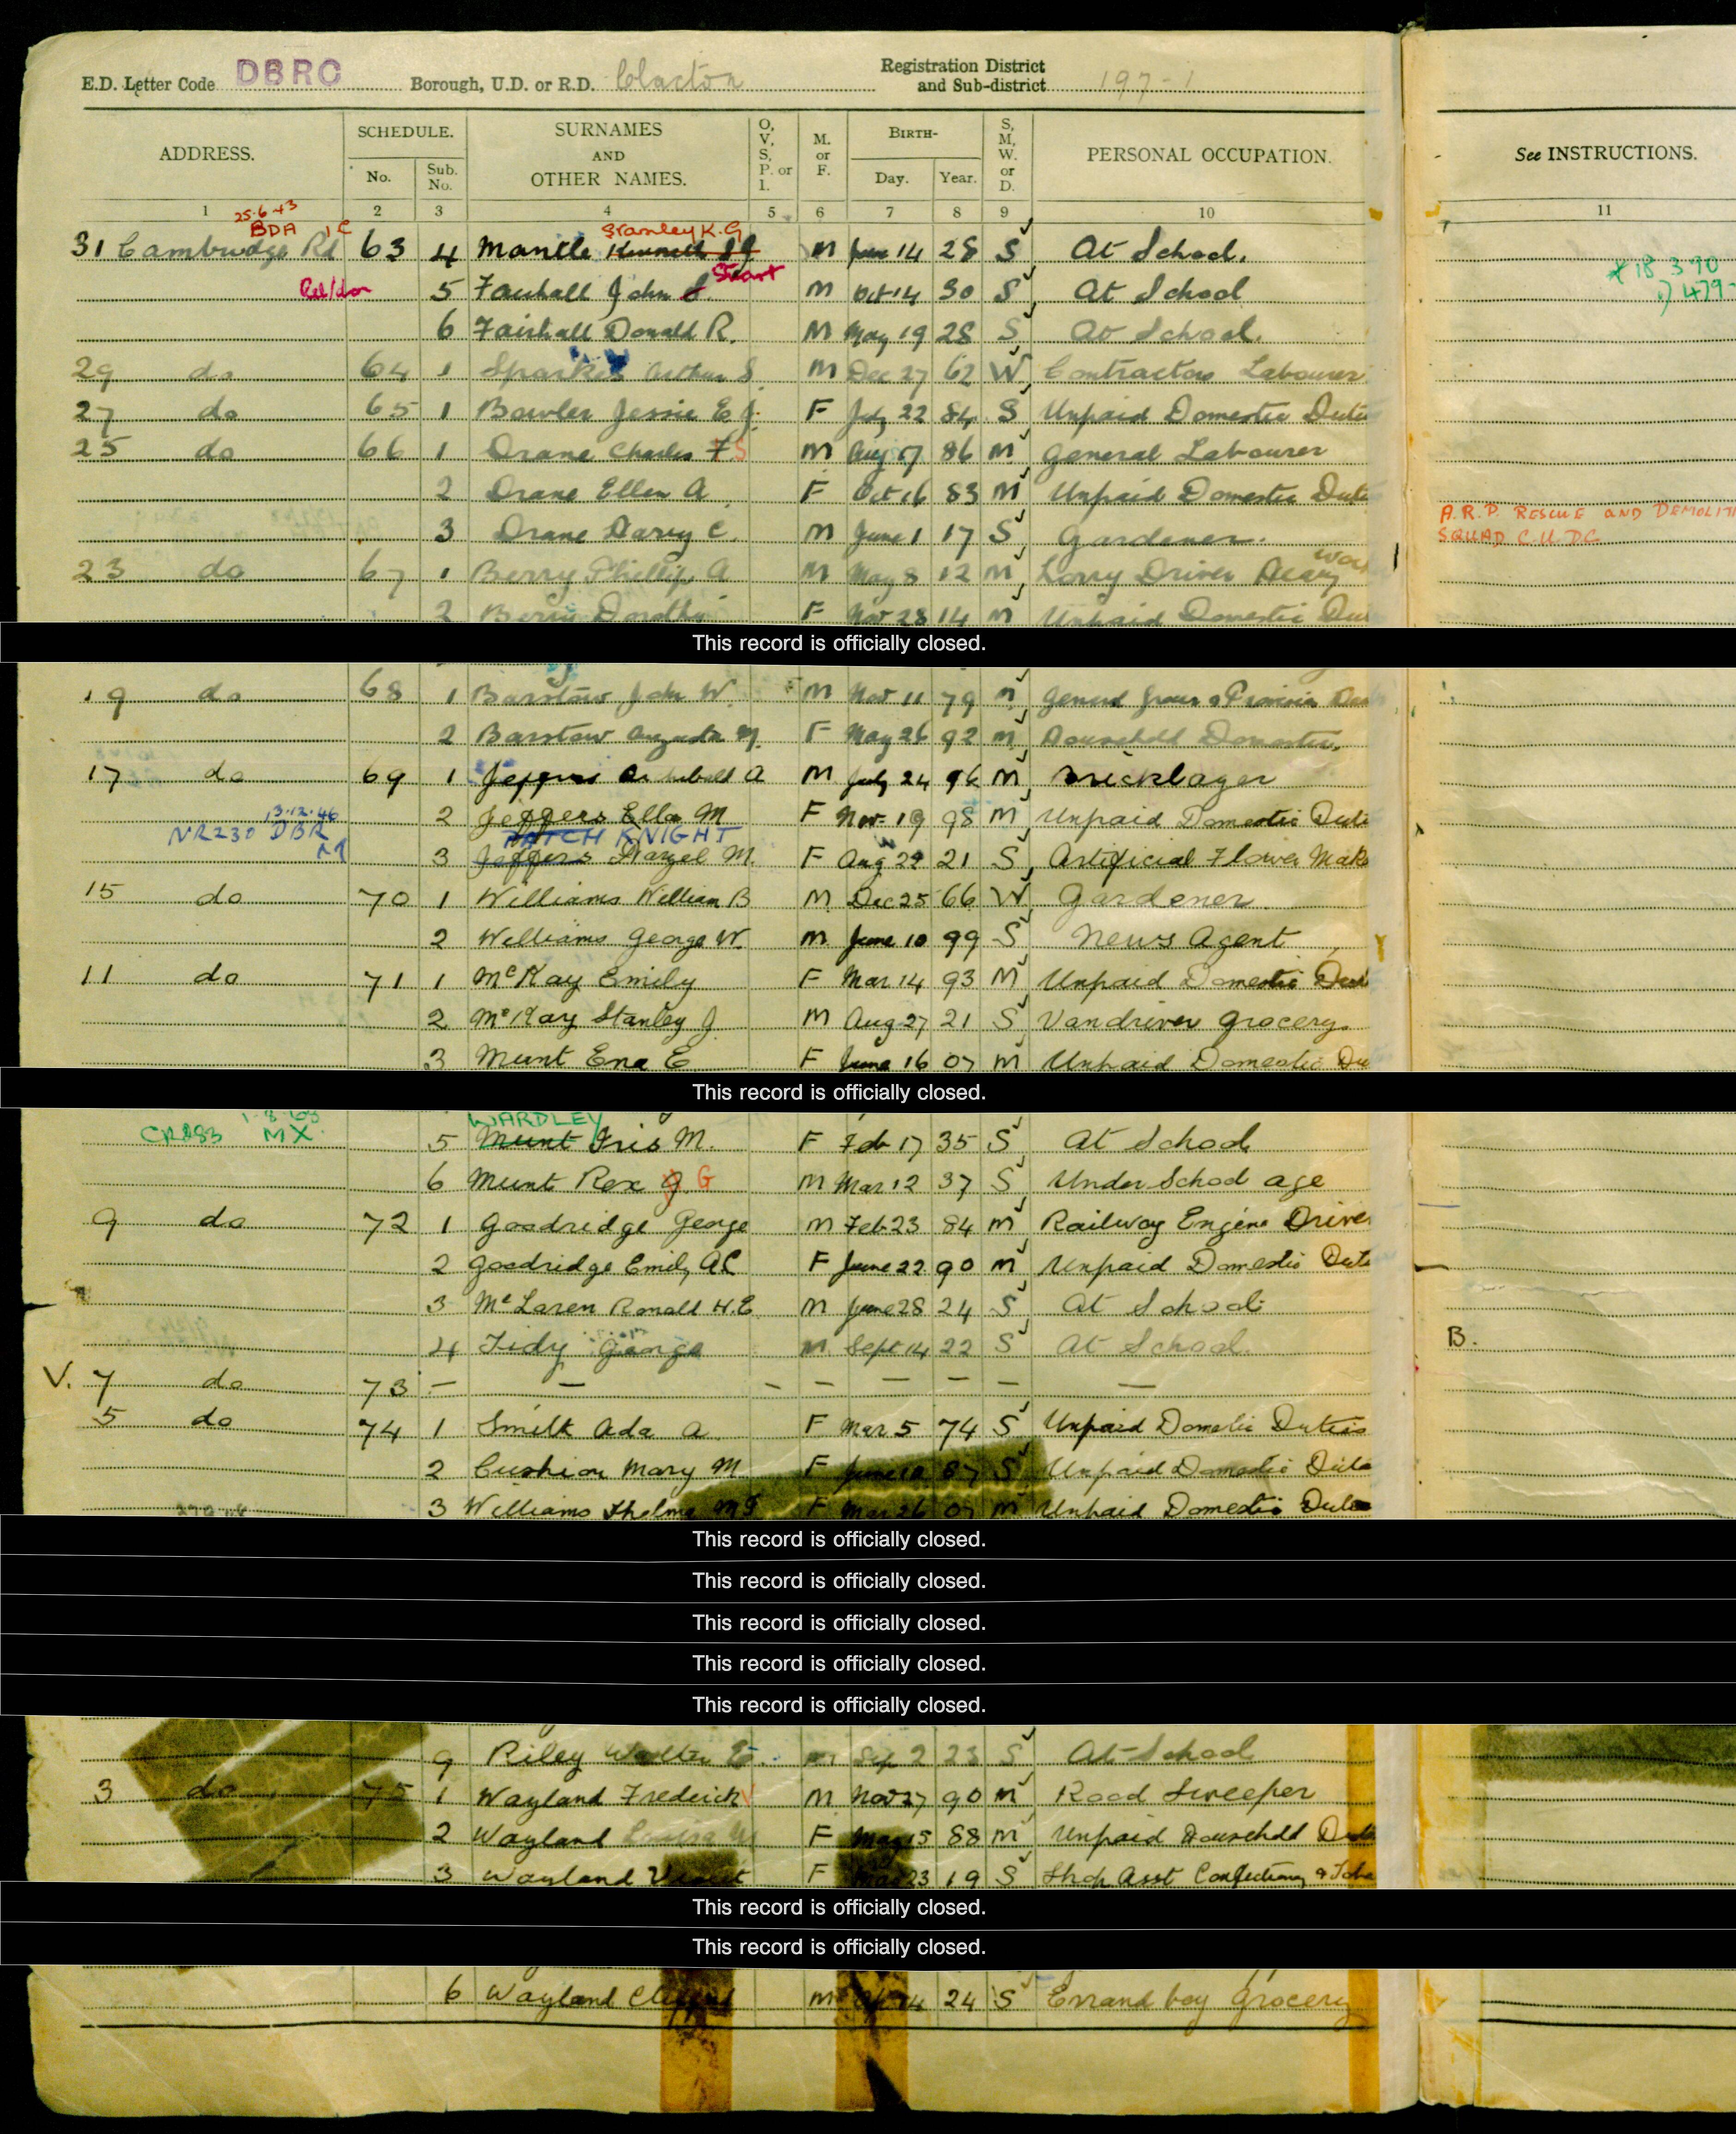 E.D. Letter Code DBRC Borough, U.D. or R.D. Clacton Registration District and Sub-district 197-1
ADDRESS. SCHEDULE. No. Sub. No. SURNAMES AND OTHER NAMES. O, V, S, P. or I. M. or F. BIRTH- Day. Year. S, M, W. or D. PERSONAL OCCUPATION. See INSTRUCTIONS.
1 2 3 4 5 6 7 8 9 10 11
25.6.43
BDA Stanley K. G
31 Cambridge Rd 63 4 Mantle Kenneth M June 14 28 S At School.
Stuart
5 Fairhall John S. M Oct 14 30 S At School
6 Fairhall Donald R. M May 19 28 S At School.
29 do 64 1 Sparkes Arthur S. M Dec 27 62 W Contractors Labourer
27 do 65 1 Bowler Jessie E J. F July 22 84 S Unpaid Domestic Duti
25 do 66 1 Drane Charles F S M Aug 17 86 M General Labourer
2 Drane Ellen A F Oct 16 83 M Unpaid Domestic Duti
3 Drane Harry C. M June 1 17 S Gardener.
A.R.P. RESCUE AND DEMOLITI
SQUAD C.U.D.C
23 do 67 1 Berry Phillip A M May 8 12 M Lorry Driver Heavy Wor
2 Berry Dorothy F Nov 28 14 M Unpaid Domestic Du
This record is officially closed.
19 do 68 1 Barstow John W. M Nov 11 79 M General Grocer & Provision
2 Barstow Augusta M. F May 26 92 M Household Domestic.
17 do 69 1 Jeffers Archibald A M July 24 96 M Bricklayer
13.12.46
2 Jeffers Ella M F Nov 19 98 M Unpaid Domestic Duti
NR230 DBR HATCH KNIGHT
3 Jeffers Hazel M. F Aug 29 21 S Artificial Flower Make
15 do 70 1 Williams William B M Dec 25 66 W Gardener
2 Williams George W. M June 10 99 S News Agent
11 do 71 1 McKay Emily F Mar 14 93 M Unpaid Domestic Duti
2 McKay Stanley J M Aug 27 21 S Vandriver Grocery.
3 Munt Ena E F June 16 07 M Unpaid Domestic Du
This record is officially closed.
WARDLEY
MX 5 Munt Iris M. F Feb 17 35 S At School
6 Munt Rex G. G M Mar 12 37 S Under School age
9 do 72 1 Goodridge George M Feb 23 84 M Railway Engine Driver
2 Goodridge Emily A C F June 22 90 M Unpaid Domestic Duti
3 McLaren Ronald H.E M June 28 24 S At School
4 Tidy George M Sept 14 22 S At School B.
V. 7 do 73 — — — — — — — —
5 do 74 1 Smith Ada A F Mar 5 74 S Unpaid Domestic Duties
2 Cushion Mary M F June 10 87 S Unpaid Domestic Dutie
3 Williams Thelma M F Mar 26 07 M Unpaid Domestic Dutie
This record is officially closed.
This record is officially closed.
This record is officially closed.
This record is officially closed.
This record is officially closed.
9 Riley Walter E. M Sep 2 23 S At School
3 do 75 1 Wayland Frederick M Nov 27 90 M Road Sweeper
2 Wayland F May 15 88 M Unpaid Household Duti
3 Wayland Violet F 23 19 S Shop Asst Confectionery & Toba
This record is officially closed.
This record is officially closed.
6 Wayland Clifford M 24 S Errand boy Grocery